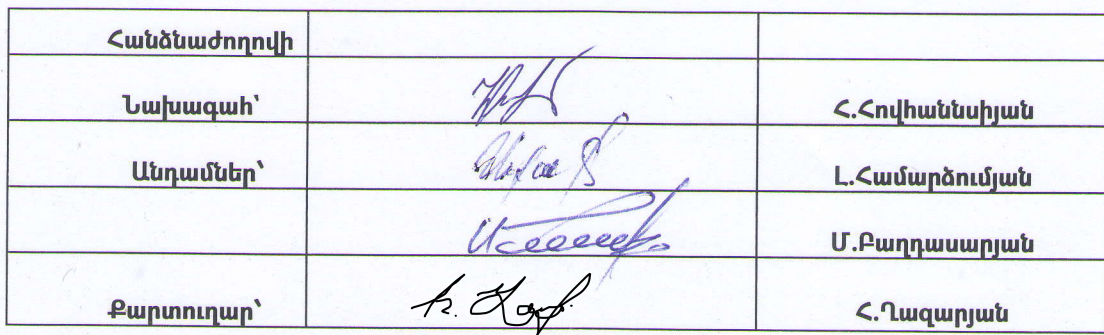 Հանձնաժողովի
Նախագահ՝ Հ.Հովհաննսիյան
Անդամներ՝ Լ.Համարձումյան
Մ.Բաղդասարյան
Քարտուղար՝ Հ.Ղազարյան